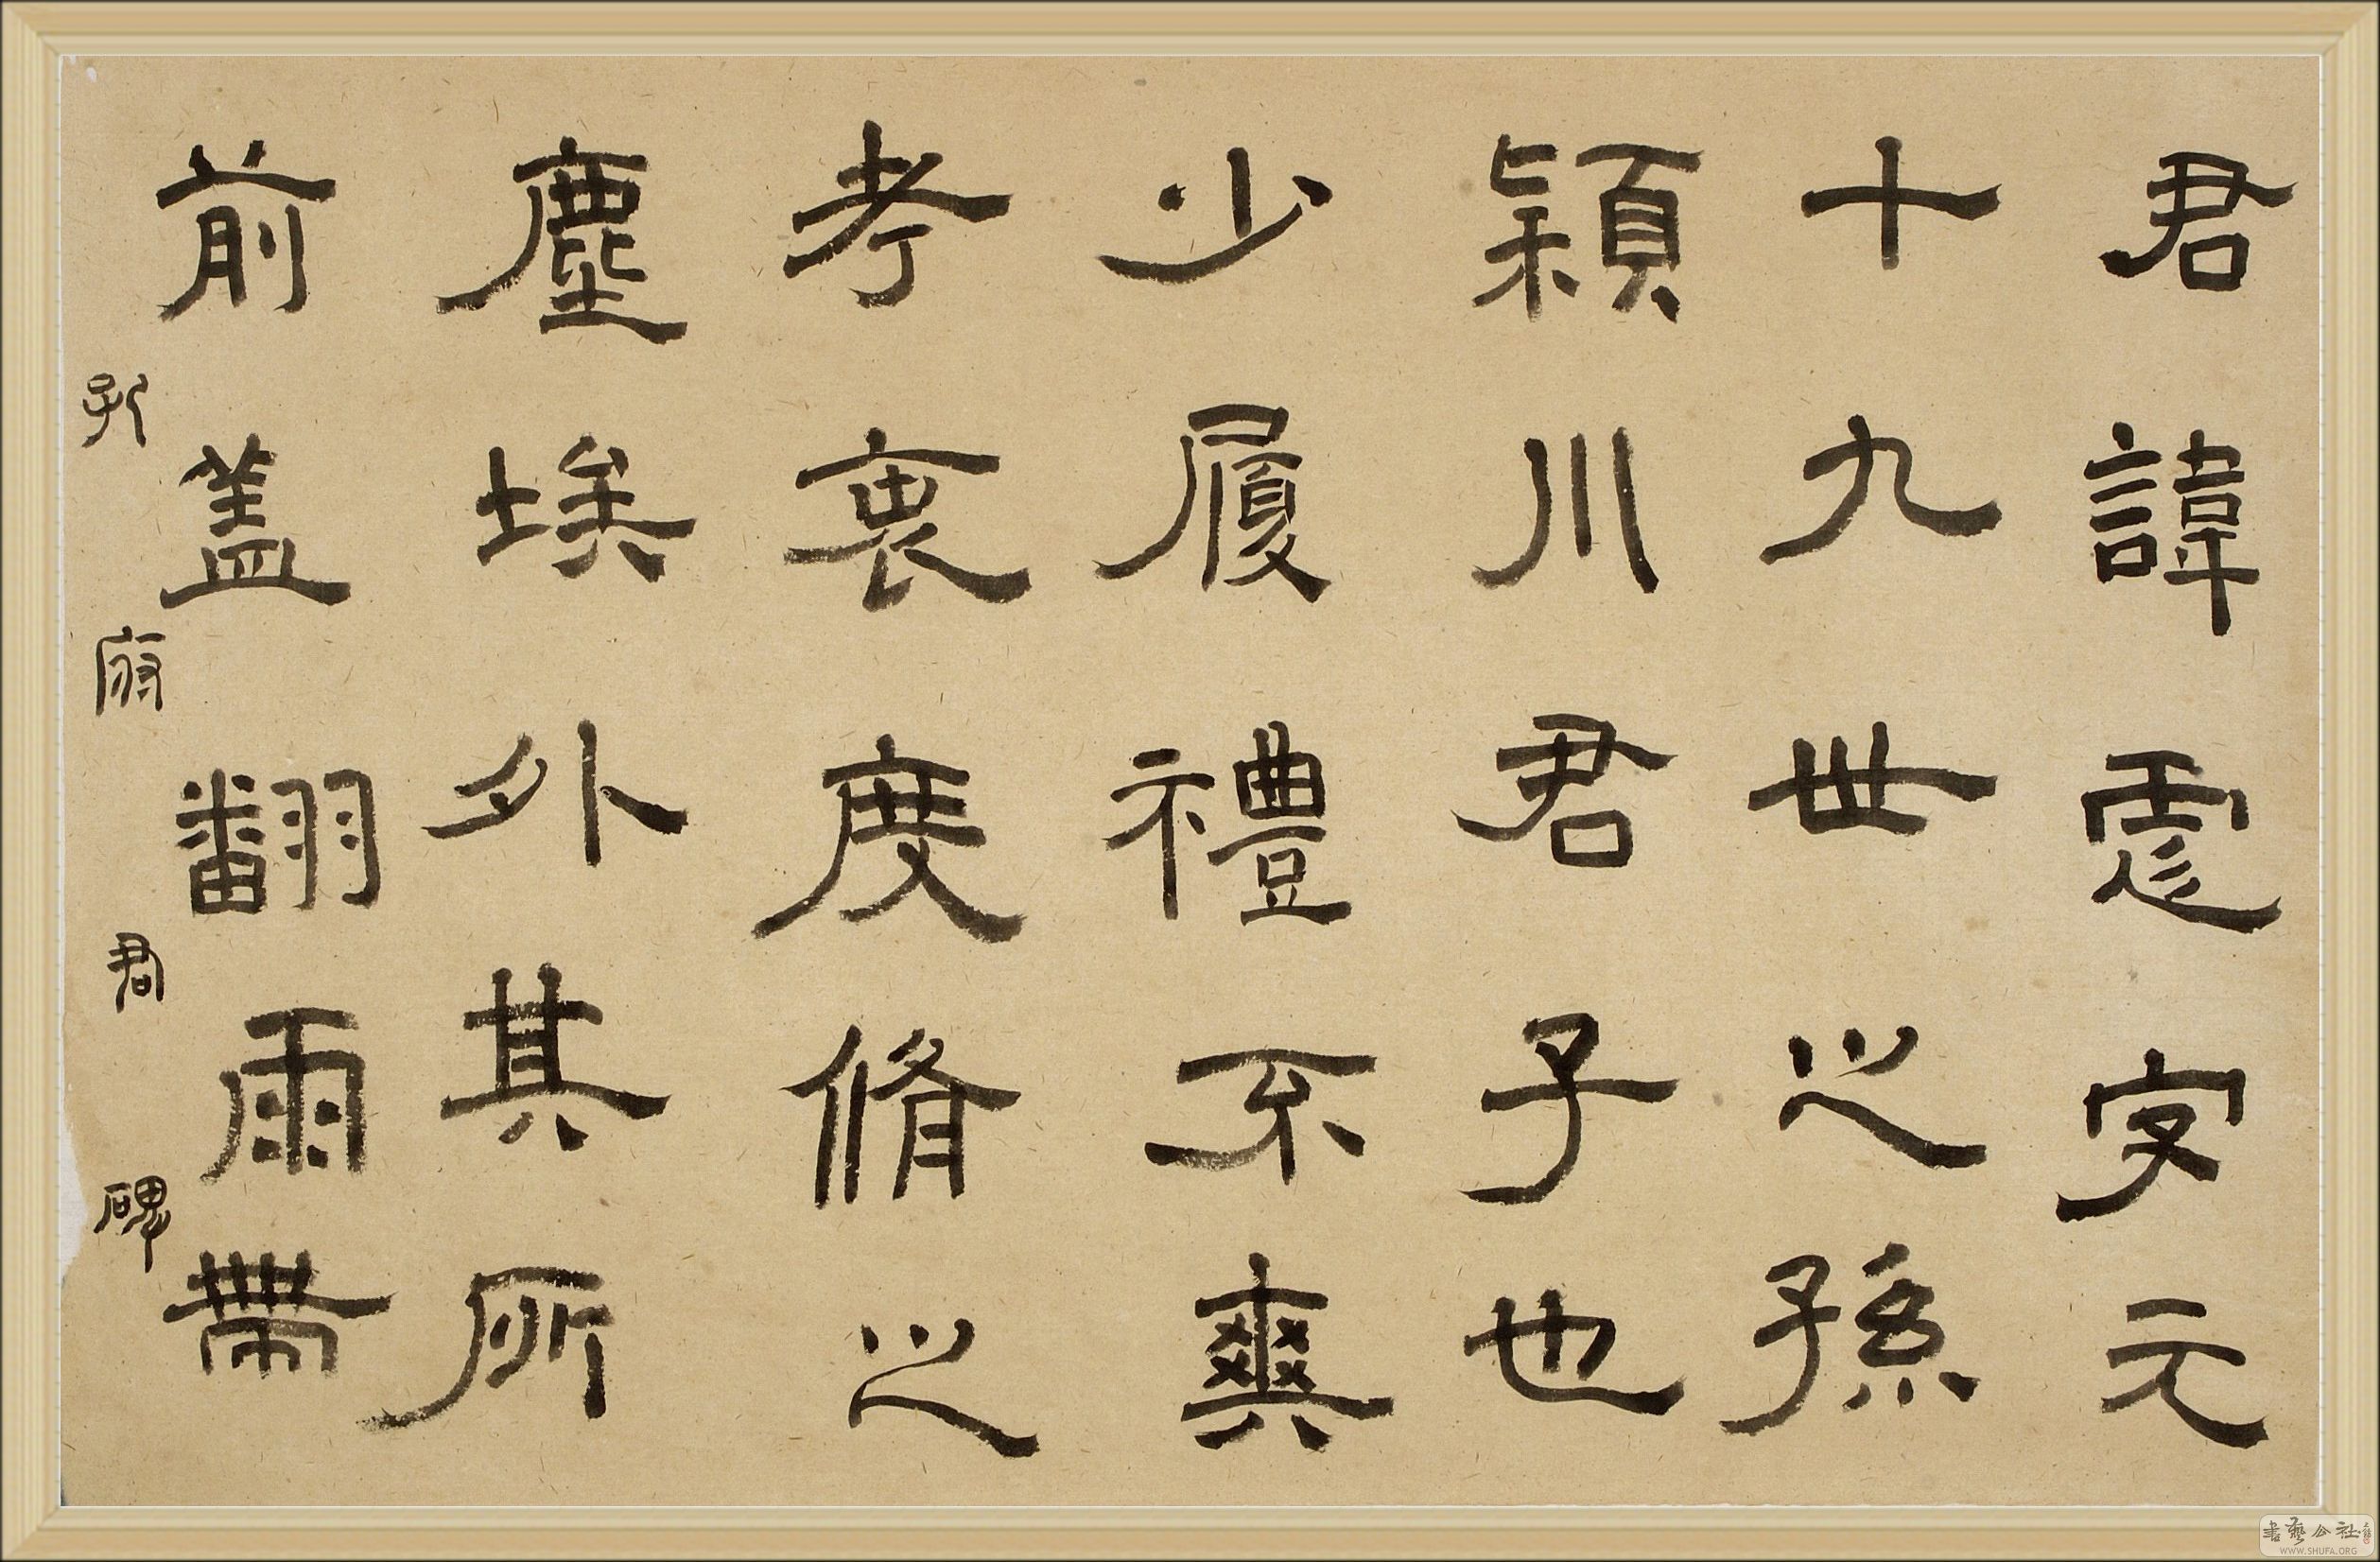 君諱震字元
十九世之孫
潁川君子也
少履禮不爽
考衷度脩之
塵埃外其所
前蓋翻雨帶
孔府君碑
書藝公社
WWW.SHUFA.ORG